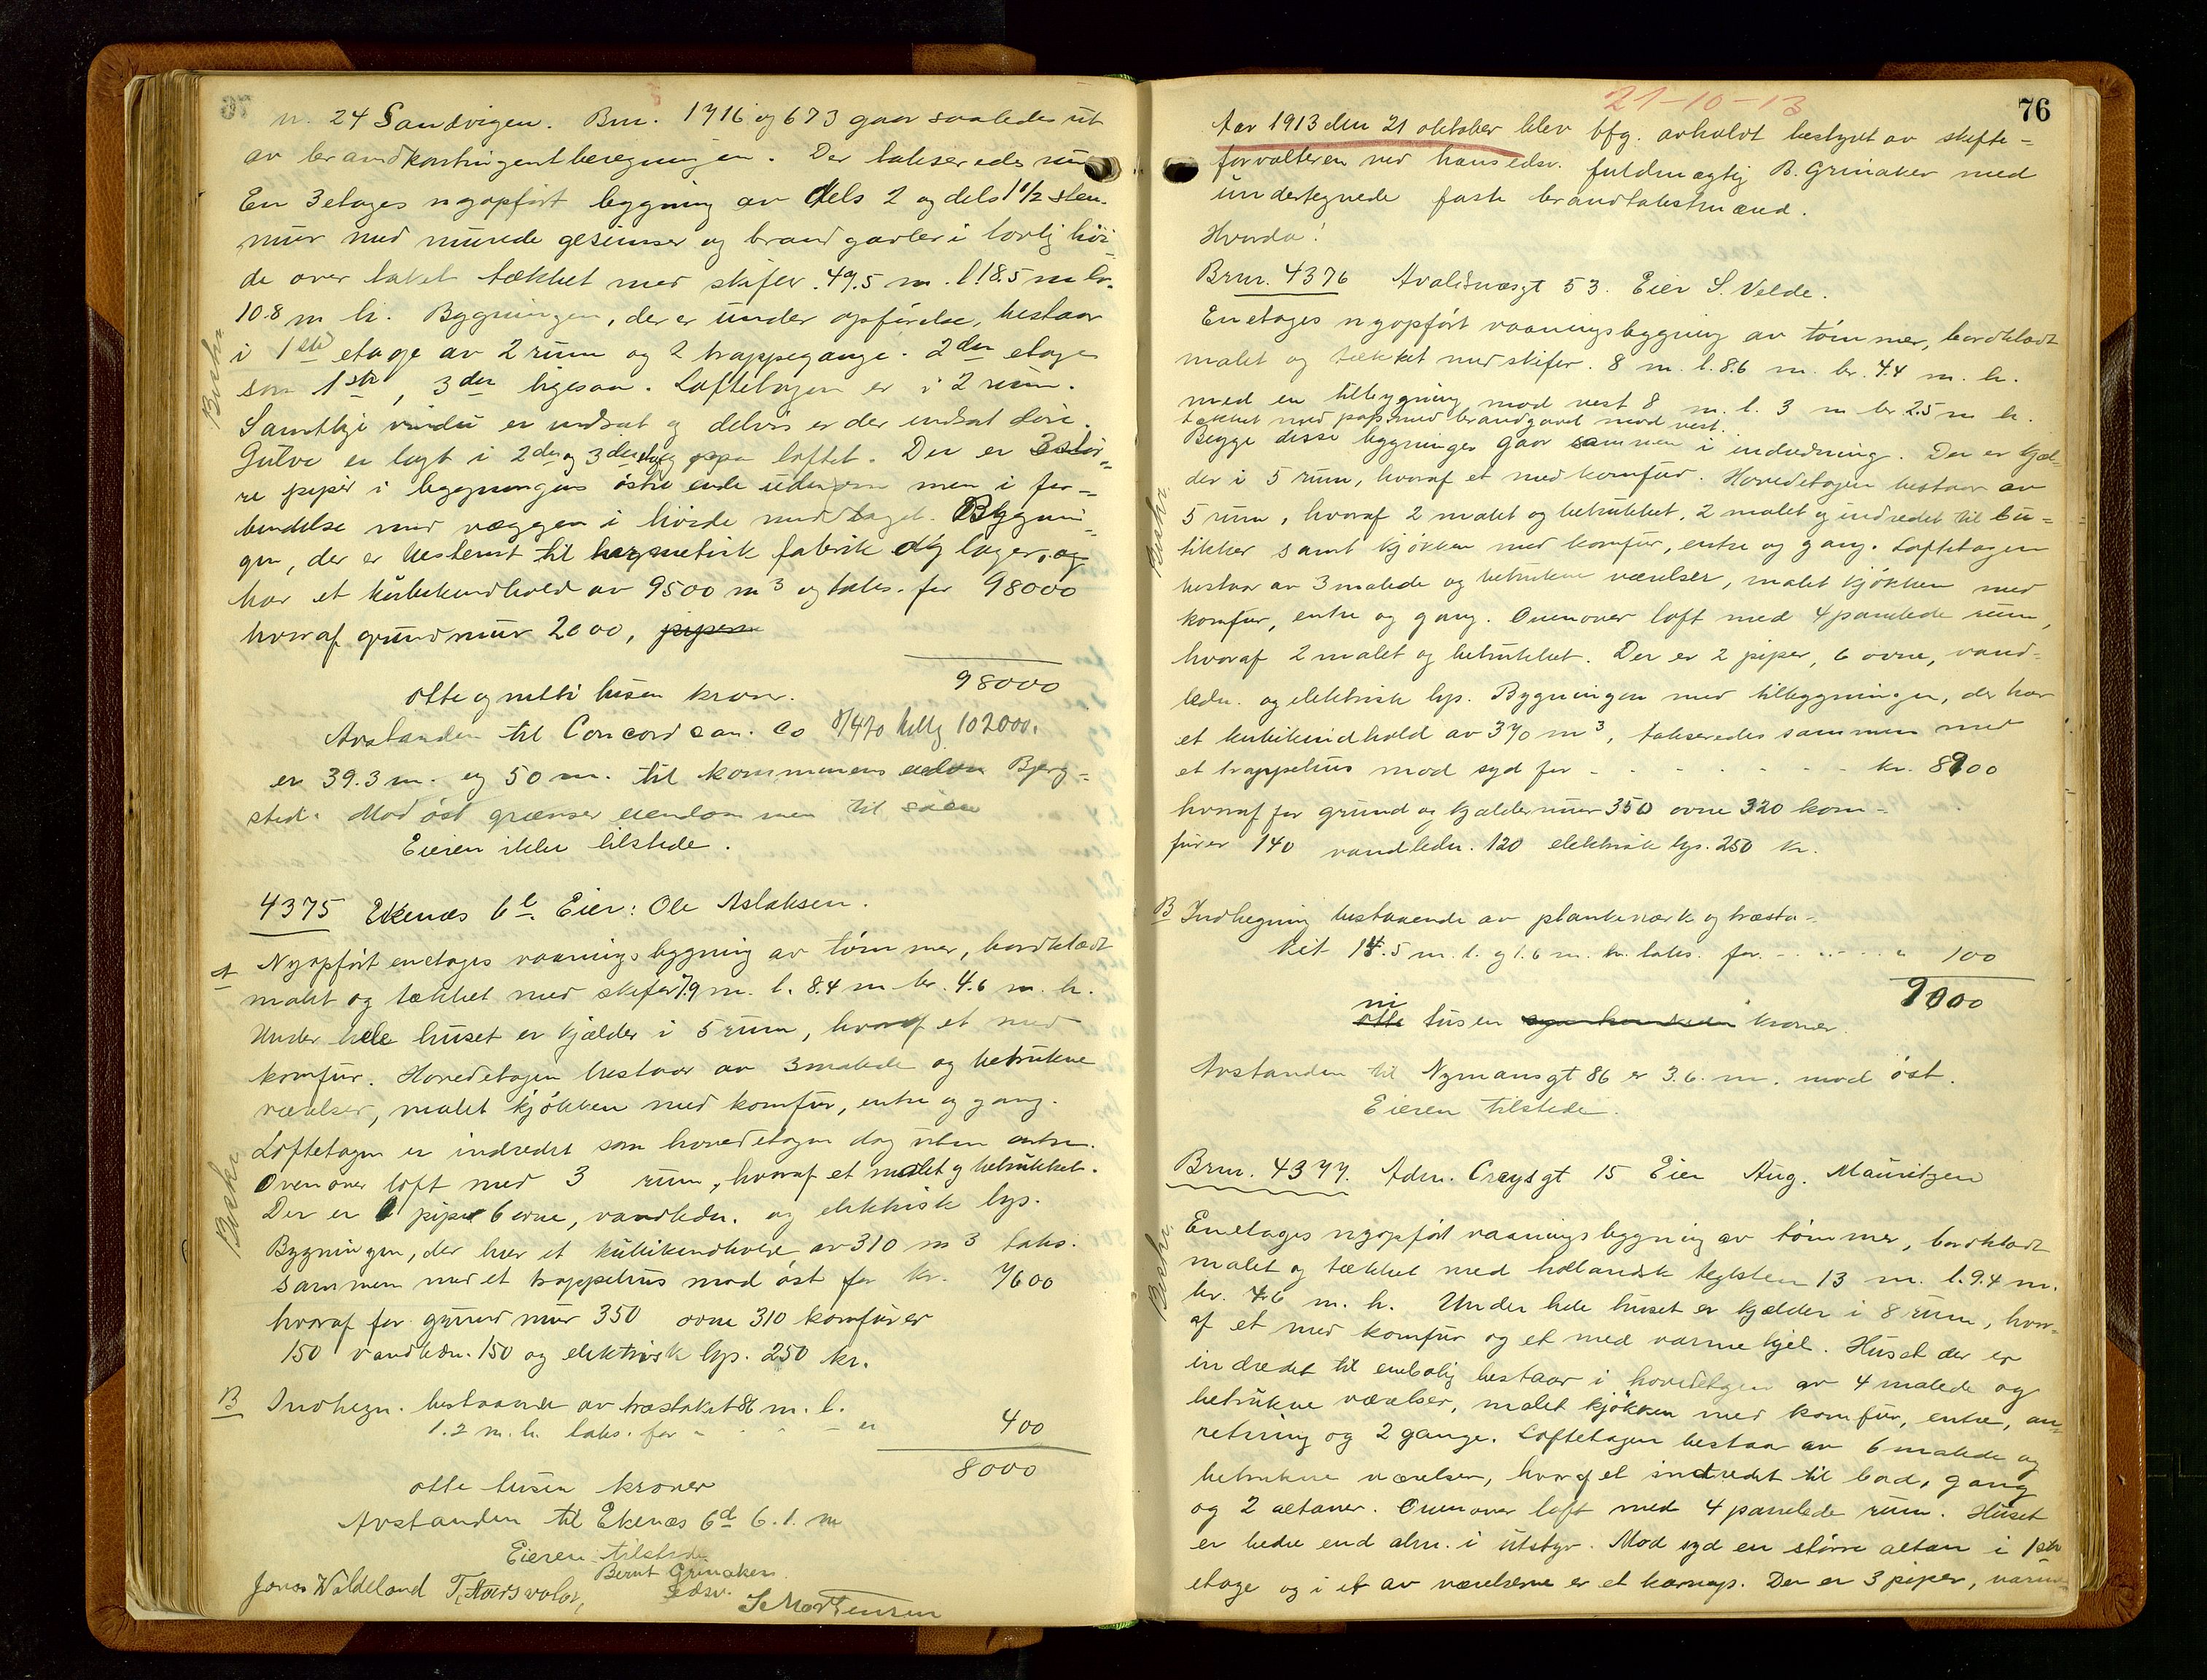 n. 24 Sandvigen. Brn. 1716 og 673 gaar saaledes ut
av brandkontingentberegningen. Der takseredes nu
En 3etages nyopført bygning av dels 2 og dels 1 1/2 sten-
mur med murede gesimser og brandgavler i lovlig høi-
de over taket tækket med skifer. 49.5 m. l. 18.5 m br.
10.8 m h. Bygningen, der er under opførelse, bestaar
i 1ste etage av 2 rum og 2 trappegange. 2den etage
som 1ste, 3den ligesaa. Loftetagen er i 2 rum.
Samtlige vindu er indsat og delvis er der indsat døre.
Gulve er lagt i 2den og 3den etage og paa loftet. Der er 3 stør-
re piper i bygningens østre ende udenom men i for-
bindelse med væggen i høide med taget. Bygnin-
gen, der er bestemt til hermetisk fabrik og lager, og
har et kubikindhold av 9500 m3 og taks. for 98000
hvoraf grundmur 2000, pipern
98000
otte og nitti tusen kroner.
Avstanden til Concord Can. Co 8/4 20 tillg 102000.
er 39.3 m. og 50 m. til kommunens eiendom Bjerg-
sted. Mod øst grænser eiendommen til søen
Eieren ikke tilstede.
4375 Ekenæs 6e. Eier: Ole Aslaksen.
A Nyopført enetages vaaningsbygning av tømmer, bordklædt
malet og tækket med skifer 7.9 m. l. 8.4 m br. 4.6 m. h.
Under hele huset er kjælder i 5 rum, hvoraf et med
komfur. Hovedetagen bestaar av 3 malede og betrukne
værelser, malet kjøkken med komfur, entre og gang.
Loftetagen er indredet som hovedetagen dog uten entre.
Ovenover loft med 3 rum, hvoraf et malet og betrukket.
Beskr.
Der er 1 pipe 6 ovne, vandledn. og elektrisk lys.
Bygningen, der har et kubikindhold av 310 m3 taks.
sammen med et trappehus mod øst for kr. 7600
hvoraf for grundmur 350 ovne 310 komfurer
150 vandledn. 150 og elektrisk lys. 250 kr.
B Indhegn. bestaaende av træstaket 86 m. l.
1.2 m. h. taks. for - - - " 400
8000
otte tusen kroner
Avstanden til Ekenæs 6d 6.1. m
Eieren tilstede
Bernt Grinaker
Jonas Waldeland T. Aarsvold, edsv. S. Mortensen
21-10-13
76
Aar 1913 den 21 oktober blev bfg. avholdt bestyret av skifte-
forvalteren ved hans edsv. fuldmægtig B. Grinaker med
undertegnede faste brandtakstmænd.
Hvorda!
Brnr. 4376 Avaldsnæsgt 53. Eier S. Velde.
Enetages nyopført vaaningsbygning av tømmer, bordklædt
malet og tækket med skifer. 8 m. l. 8.6 m. br. 4.4 m. h.
med en tilbygning mod vest 8 m. l. 3 m br. 2.5 m h.
tækket med pap med brandgavl mod vest.
Begge disse bygninger gaar sammen i indredning. Der er kjæl-
der i 5 rum, hvoraf et med komfur. Hovedetagen bestaar av
Beskr.
5 rum, hvoraf 2 malet og betrukket, 2 malet og indredet til bu-
tikker samt kjøkken med komfur, entre og gang. Loftetagen
bestaar av 3 malede og betrukne værelser, malet kjøkken med
komfur, entre og gang. Ovenover loft med 4 panelede rum,
hvoraf 2 malet og betrukket. Der er 2 piper, 6 ovne, vand-
ledn. og elektrisk lys. Bygningen med tilbygningen, der har
et kubikindhold av 370 m3, takseredes sammen med
et trappehus mod syd for - - - - - - - kr. 8900
hvoraf for grund og kjældermur 350 ovne 320 kom-
furer 140 vandledn. 120 elektrisk lys. 250 kr.
B Indhegning bestaaende av plankeværk og træsta-
ket 14.5 m. l. og 1.6 m. h. taks. for - - - - " 100
9000
ni
otte tusen syv hundrede kroner.
Avstanden til Nymansgt 86 er 3.6. m. mod øst.
Eieren tilstede.
Brnr. 4377. Adm. Creysgt 15 Eier Aug. Mauritzen
Beskr.
Enetages nyopført vaaningsbygning av tømmer, bordklædt
malet og tækket med hollandsk teglsten 13 m. l. 9.4 m.
br. 4.6 m. h. Under hele huset er kjælder i 8 rum, hvor-
af et med komfur og et med varmekjel. Huset der er
indredet til enebolig bestaar i hovedetagen av 4 malede og
betrukne værelser, malet kjøkken med komfur, entre, an-
retning og 2 gange. Loftetagen bestaar av 6 malede og
betrukne værelser, hvoraf et indredet til bad, gang
og 2 altaner. Ovenover loft med 4 panelede rum. Huset
er bedre end alm. i utstyr. Mod syd en større altan i 1ste
etage og i et av værelserne er et karnap. Der er 3 piper, varme-